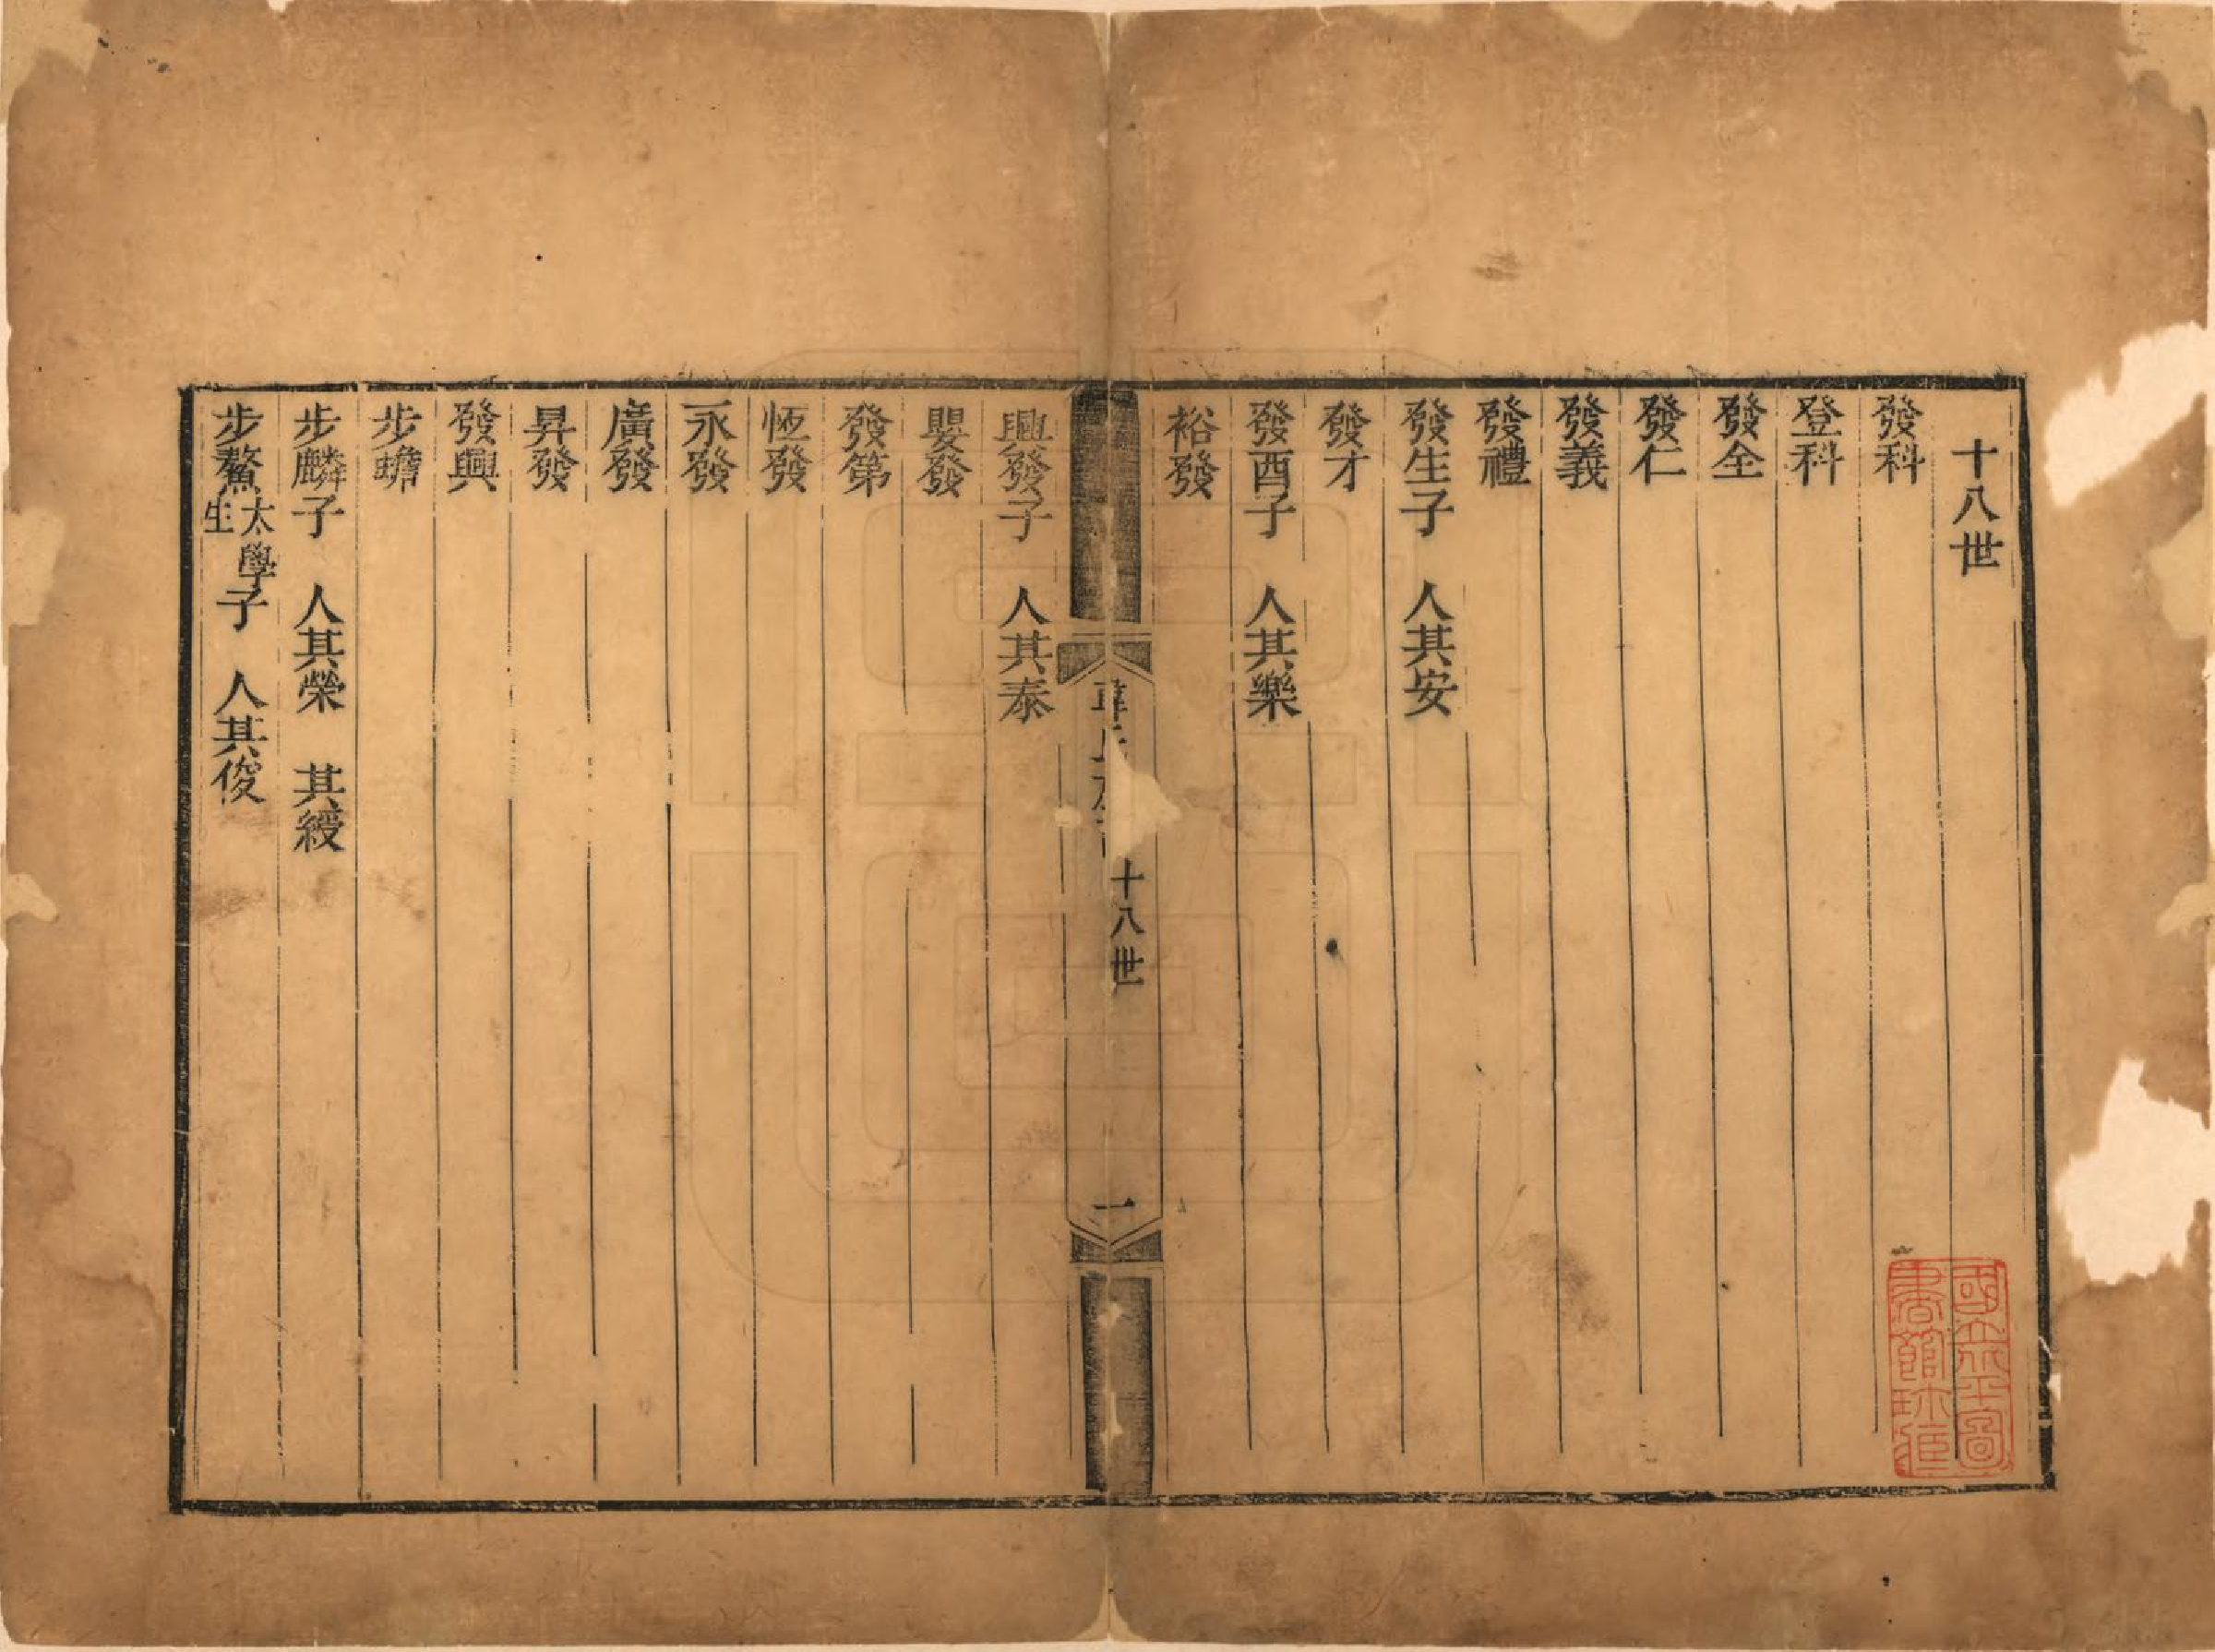 十八世
發科
登科
發全
發仁
發義
發禮
發生子　人其安
發才
發酉子　人其樂
裕發
十八世
一
興發子　人其泰
嬰發
發第
恆發
永發
廣發
昇發
發興
步蟾
步麟子　人其榮　其綬
步鰲太學生子　人其俊
國立北平圖書館珍藏